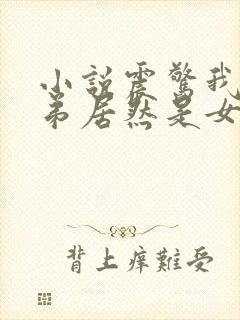 小説震驚我
弟居然是女
背上痒難受